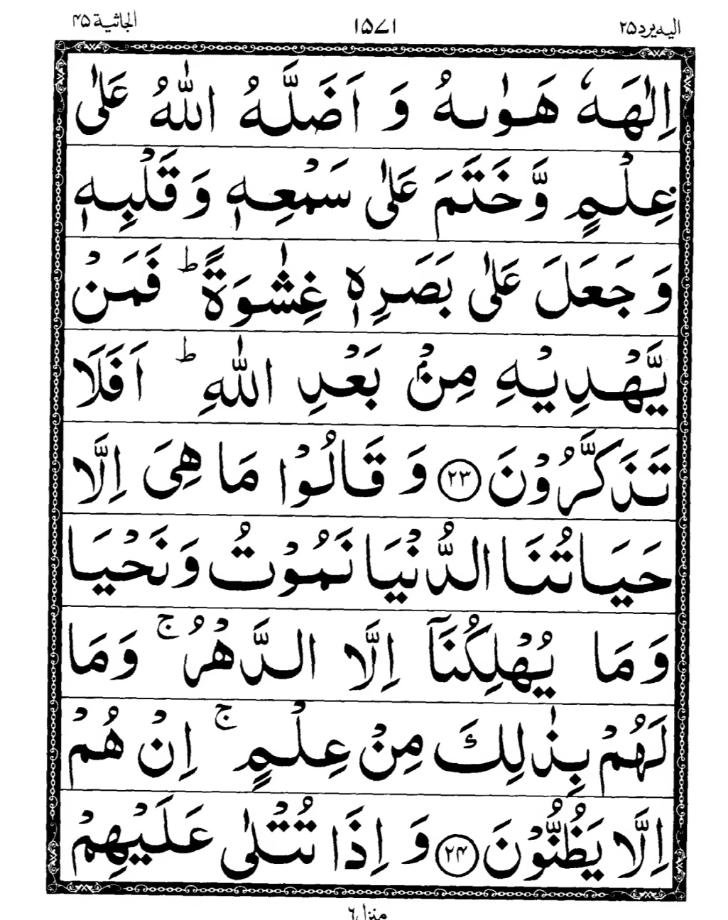 الیه یرد ۲۵
۱۵۷۱
الجاثیة ۴۵
اِلٰهَهٗ هَوٰىهُ وَ اَضَلَّهُ اللّٰهُ عَلٰى
عِلْمٍ وَّ خَتَمَ عَلٰى سَمْعِهٖ وَ قَلْبِهٖ
وَ جَعَلَ عَلٰى بَصَرِهٖ غِشٰوَةً ؕ فَمَنْ
یَّهْدِیْهِ مِنْۢ بَعْدِ اللّٰهِ ؕ اَفَلَا
تَذَكَّرُوْنَ ﴿۲۳﴾ وَ قَالُوْا مَا هِیَ اِلَّا
حَیَاتُنَا الدُّنْیَا نَمُوْتُ وَ نَحْیَا
وَ مَا یُهْلِكُنَاۤ اِلَّا الدَّهْرُ ۚ وَ مَا
لَهُمْ بِذٰلِكَ مِنْ عِلْمٍ ۚ اِنْ هُمْ
اِلَّا یَظُنُّوْنَ ﴿۲۴﴾ وَ اِذَا تُتْلٰى عَلَیْهِمْ
منزل ۶